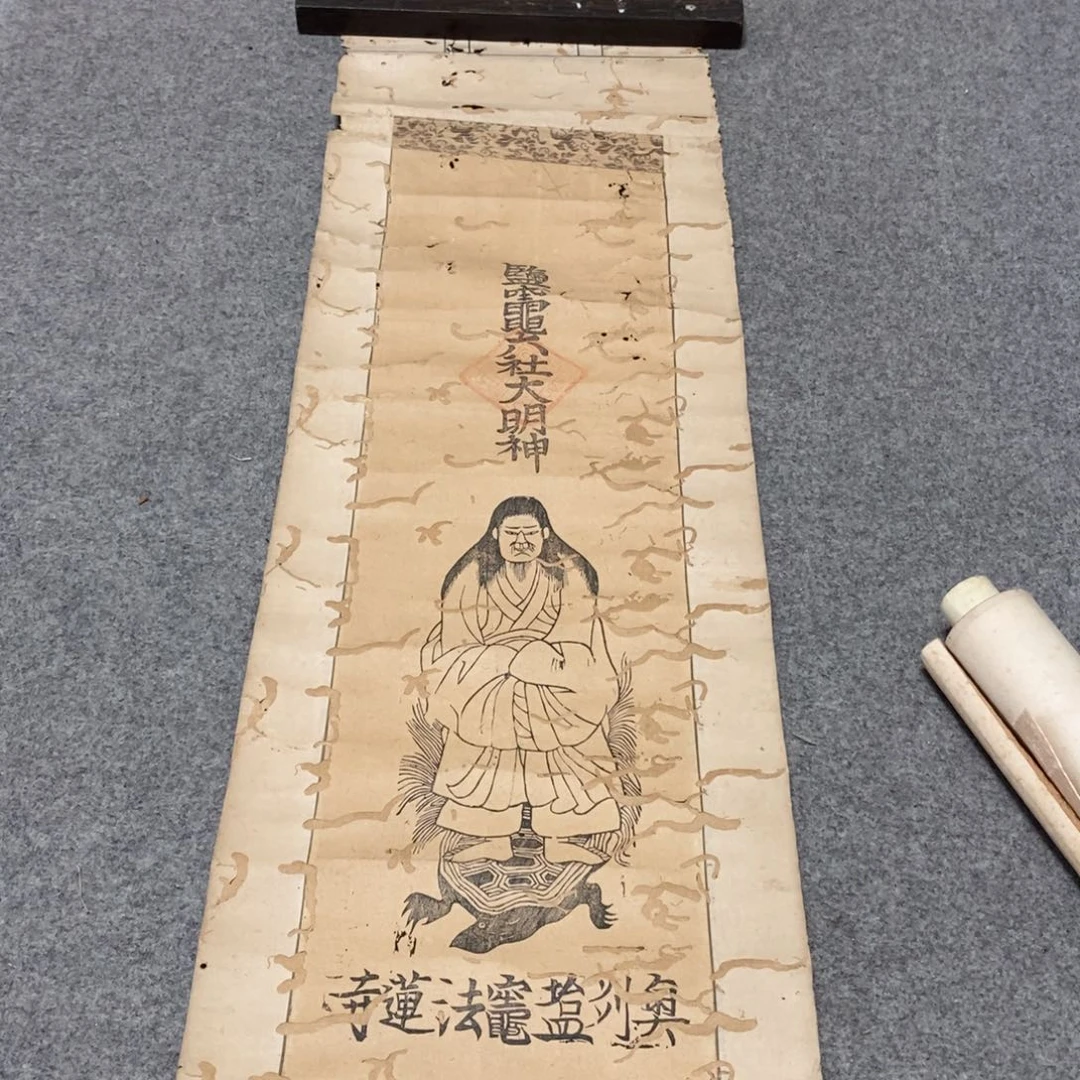 鹽竈六社大明神
奥州塩竈法蓮寺